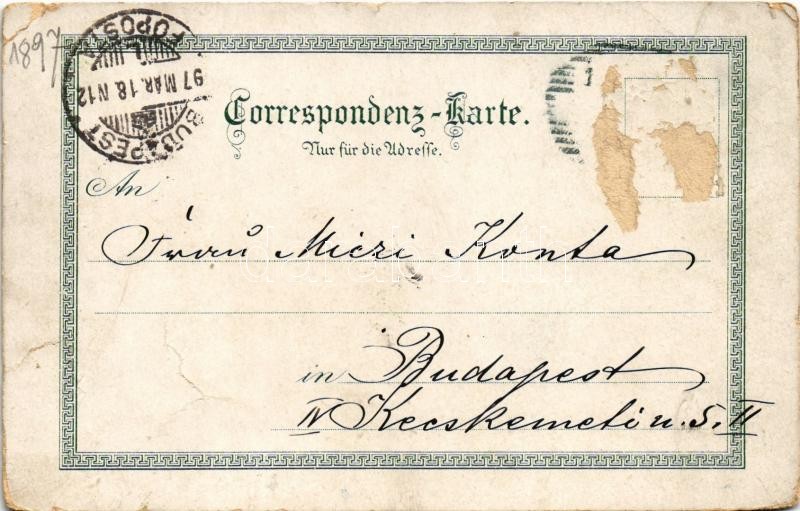 1897
BUDAPEST
97 MÁR. 18. N12
FŐPOSTA
1
Correspondenz-Karte.
Nur für die Adresse.
An
Frau Miczi Konta
in Budapest
IV Kecskeméti u. 5. II